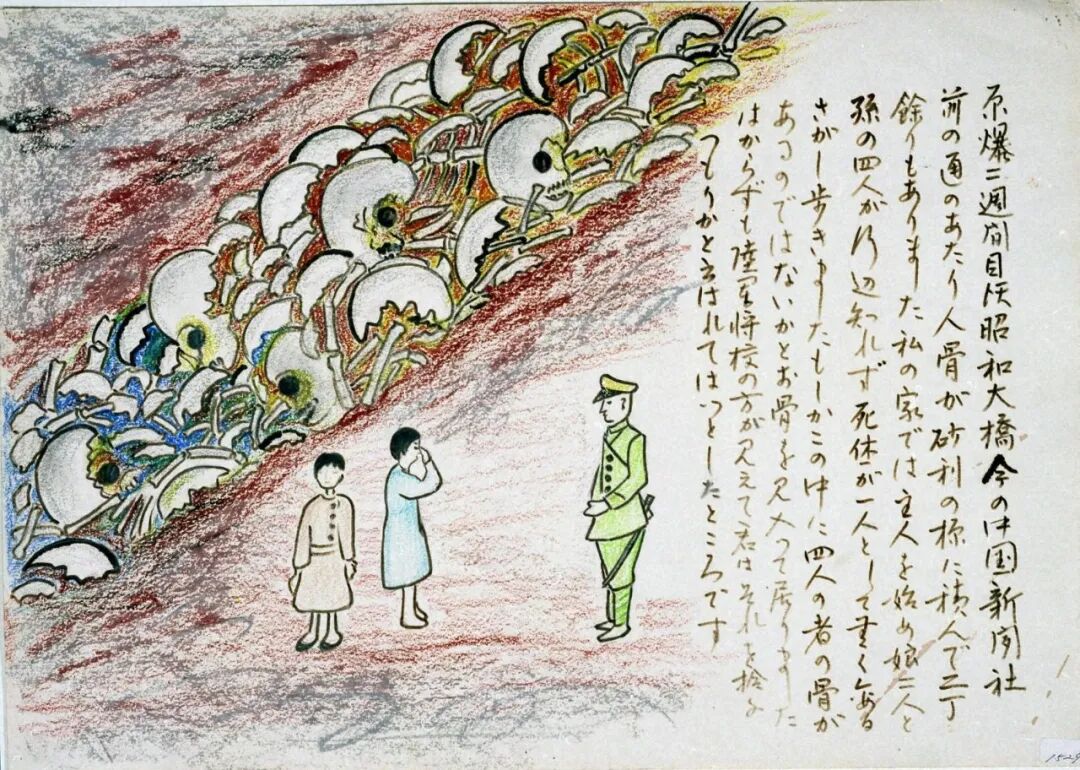 原爆二週間目昭和大橋今の中国新聞社
前の通のあたり人骨が砂利の様に積んで二丁
餘りもありました私の家では主人を始め娘二人と
孫の四人が行辺知れず死体が一人として無く
さがし歩きましたもしかこの中に四人の者の骨が
あるのではないかとお骨を見入って居りました
はからずも陸軍将校の方が見えて君はそれを拾ふ
つもりかと云はれてはっとしたところです